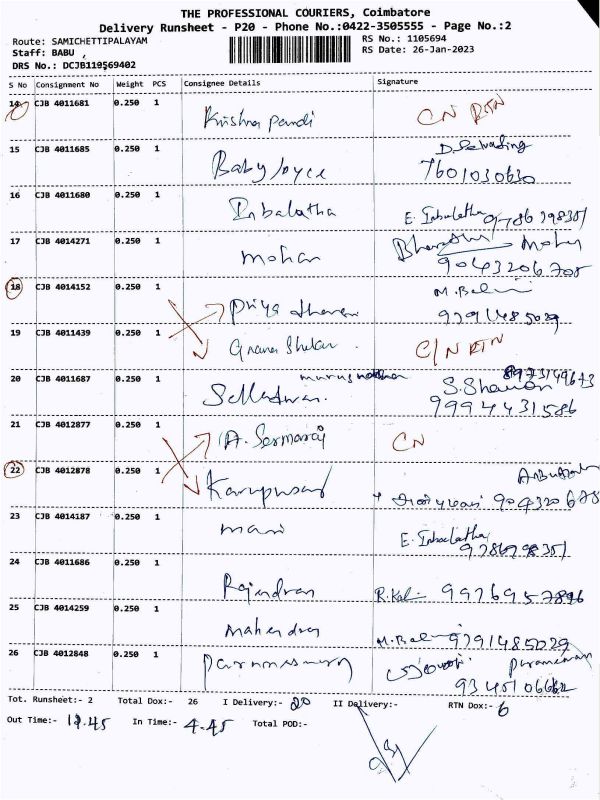 THE PROFESSIONAL COURIERS, Coimbatore
Delivery Runsheet - P20 - Phone No.:0422-3505555 - Page No.:2
Route: SAMICHETTIPALAYAM RS No.: 1105694
Staff: BABU , RS Date: 26-Jan-2023
DRS No.: DCJB110569402
S No Consignment No Weight PCS Consignee Details Signature
14 CJB 4011681 0.250 1
Krishna pandi CN RTN
15 CJB 4011685 0.250 1
Baby Joyce 7601030630
16 CJB 4011680 0.250 1
Inbalatha E. Inbalatha 9786798351
17 CJB 4014271 0.250 1
mohan 9043206705
18 CJB 4014152 0.250 1
Priya dharsan 9791485029
19 CJB 4011439 0.250 1
Gnana Shekar C/N RTN
20 CJB 4011687 0.250 1
9994431586
21 CJB 4012877 0.250 1
A. CN
22 CJB 4012878 0.250 1
23 CJB 4014187 0.250 1
mani E. Inbalatha 9786798351
24 CJB 4011686 0.250 1
Rajendran R. 9976957896
25 CJB 4014259 0.250 1
Mahendran 9791485029
26 CJB 4012848 0.250 1
Tot. Runsheet:- 2 Total Dox:- 26 I Delivery:- 20 II Delivery:- RTN Dox:- 6
Out Time:- In Time:- 4.45 Total POD:-